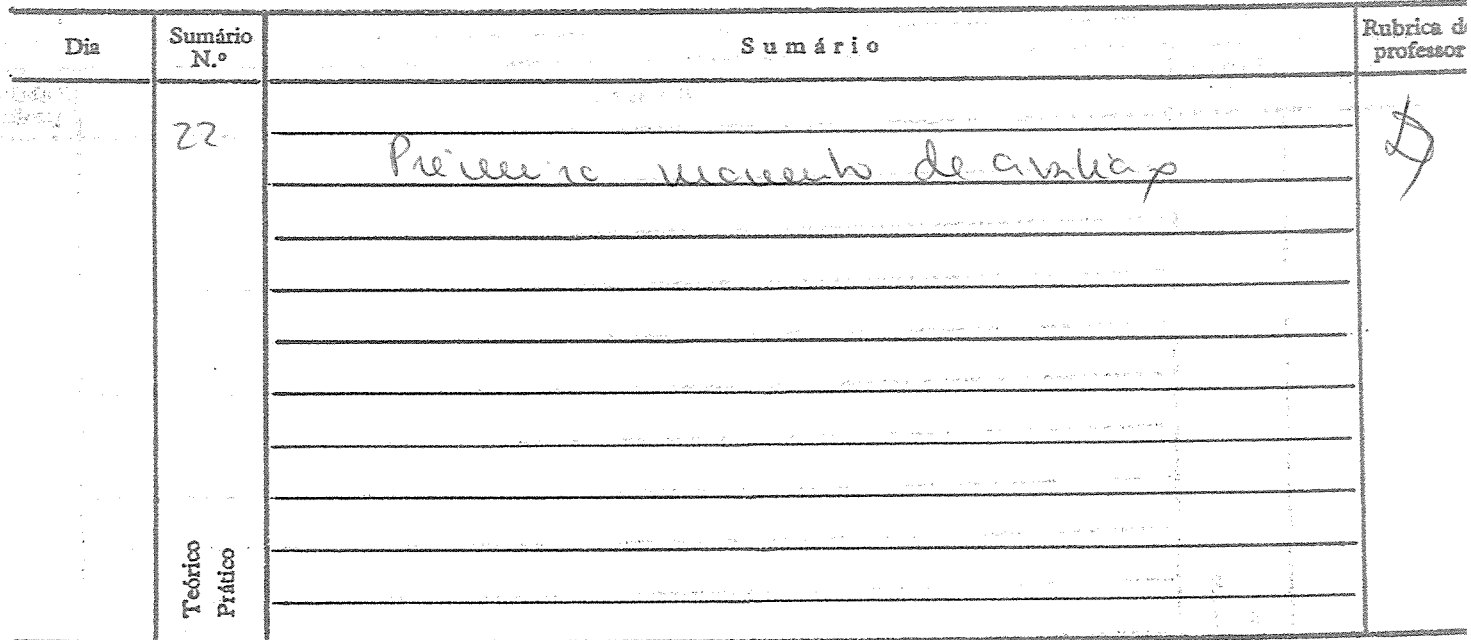 Dia
Sumário N.º
Sumário
Rubrica do professor
22
Primeiro momento de avaliação
Teórico
Prático